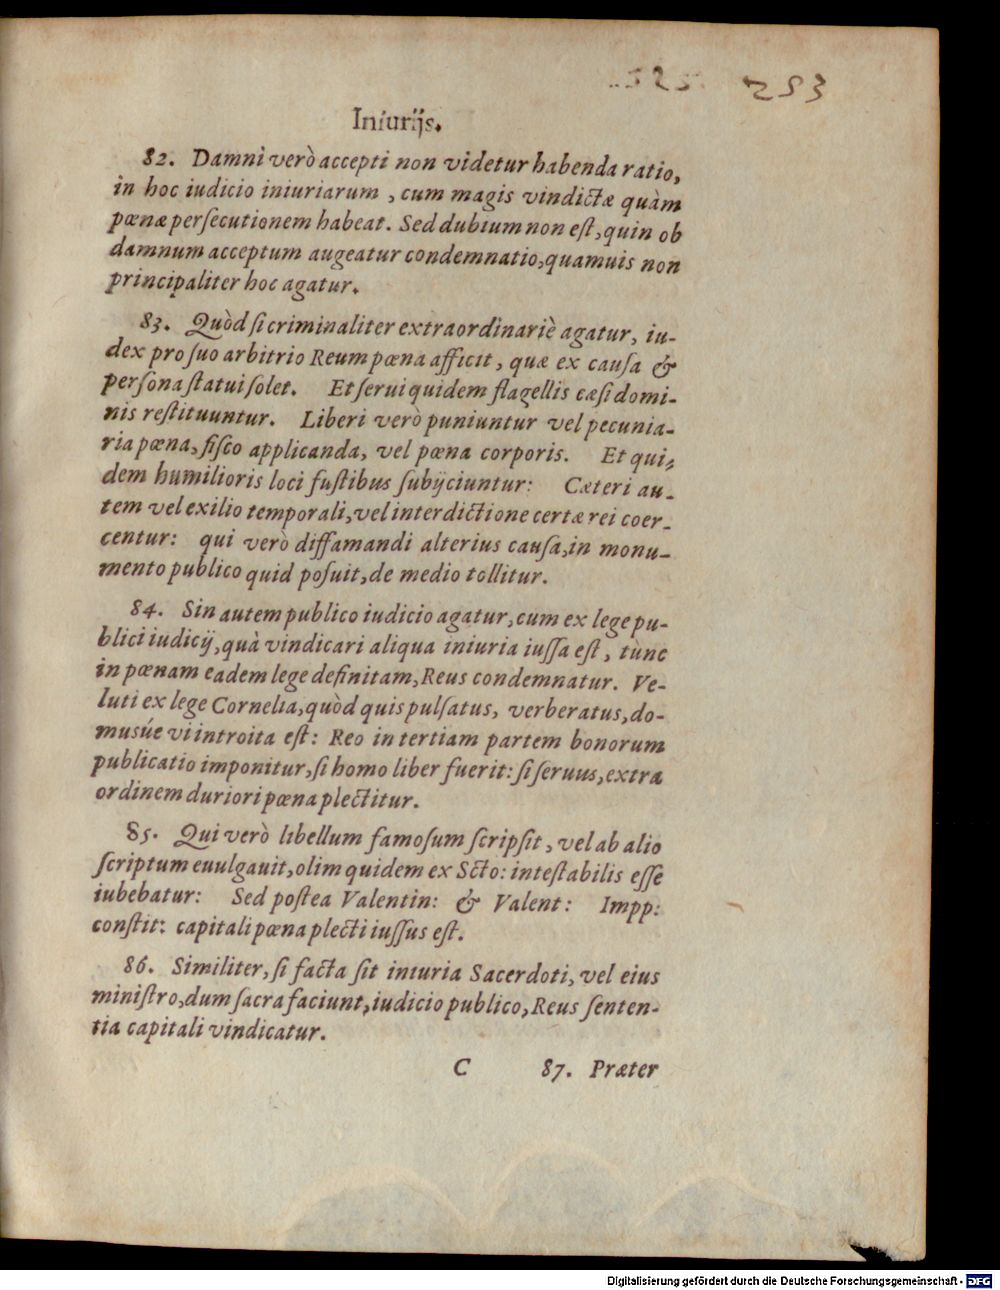 253
Iniurijs.
82. Damni verò accepti non videtur habenda ratio,
in hoc iudicio iniuriarum, cum magis vindictæ quàm
pœnæ persecutionem habeat. Sed dubium non est, quin ob
damnum acceptum augeatur condemnatio, quamuis non
principaliter hoc agatur.
83. Quòd si criminaliter extraordinariè agatur, iu-
dex pro suo arbitrio Reum pœna afficit, quæ ex causa &
persona statui solet. Et serui quidem flagellis cæsi domi-
nis restituuntur. Liberi verò puniuntur vel pecunia-
ria pœna, fisco applicanda, vel pœna corporis. Et qui-
dem humilioris loci fustibus subijciuntur: Cæteri au-
tem vel exilio temporali, vel interdictione certæ rei coer-
centur: qui verò diffamandi alterius causa, in monu-
mento publico quid posuit, de medio tollitur.
84. Sin autem publico iudicio agatur, cum ex lege pu-
blici iudicij, quà vindicari aliqua iniuria iussa est, tunc
in pœnam eadem lege definitam, Reus condemnatur. Ve-
luti ex lege Cornelia, quòd quis pulsatus, verberatus, do-
musúe vi introita est: Reo in tertiam partem bonorum
publicatio imponitur, si homo liber fuerit: si seruus, extra
ordinem duriori pœna plectitur.
85. Qui verò libellum famosum scripsit, vel ab alio
scriptum euulgauit, olim quidem ex Scto: intestabilis esse
iubebatur: Sed postea Valentin: & Valent: Impp:
constit: capitali pœna plecti iussus est.
86. Similiter, si facta sit iniuria Sacerdoti, vel eius
ministro, dum sacra faciunt, iudicio publico, Reus senten-
tia capitali vindicatur.
C 87. Præter
Digitalisierung gefördert durch die Deutsche Forschungsgemeinschaft - DFG